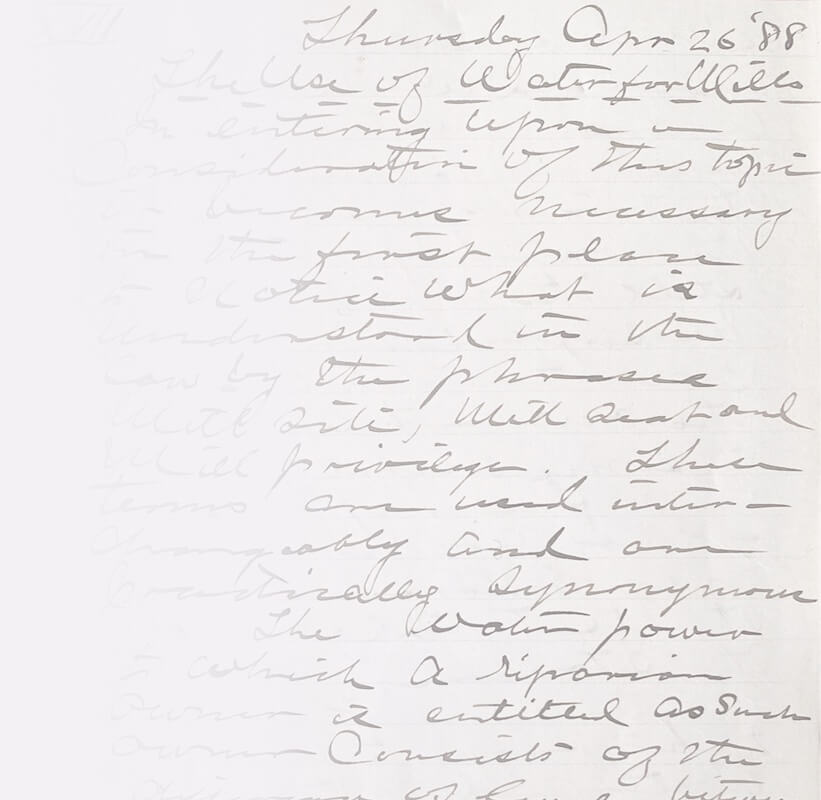 Thursday Apr 26 '88
The Use of Water for Mills
In entering upon a
Consideration of this topic
it becomes necessary
in the first place
to Notice What is
understood in the
Law by the phrases
Mill Site, Mill Seat and
Mill privilege. These
terms are used inter-
changeably and are
practically Synonymous
The Water power
to which a riparian
owner is entitled as Such
owner Consists of the
of